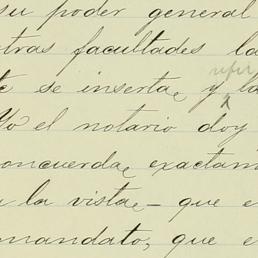 su poder general
otras facultades la
te se inserta, y la
Yo el notario doy
concuerda exactam
a la vista, - que e
mandato, que e